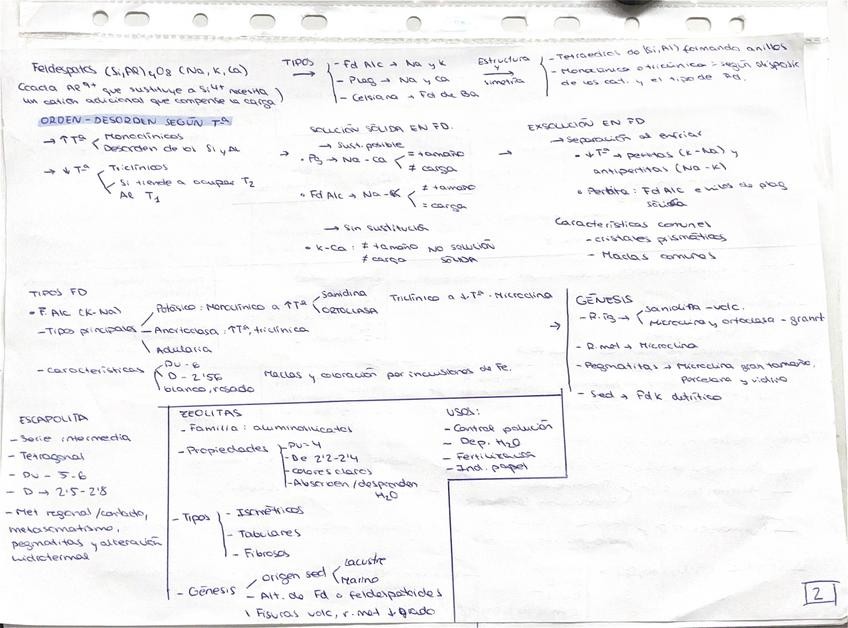 Feldespatos (Si,Al)4O8 (Na, K, Ca)
(cada Al³⁺ que sustituye a Si⁴⁺ necesita
un catión adicional que compense la carga)
TIPOS →
- Fd Alc → Na y K
- Plag → Na y Ca
- Celsiana → Fd de Ba
Estructura y simetría →
- Tetraedros de (Si, Al) formando anillos
- Monoclínico o triclínico: según disposic
de los cat. y el tipo de Fd.
ORDEN - DESORDEN SEGÚN Tª
→ ↑↑Tª
Monoclínicos
Desorden de los Si y Al
→ ↓Tª
Triclínicos
Si tiende a ocupar T2
Al T1
SOLUCIÓN SÓLIDA EN FD.
→ Sust. posible
• Pg → Na - Ca
= tamaño
≠ carga
• Fd Alc → Na - K
≠ tamaño
= carga
→ Sin sustitución
• K-Ca: ≠ tamaño NO SOLUCIÓN
≠ carga SÓLIDA
EXSOLUCIÓN EN FD
→ Separación al enfriar
• ↓Tª → pertitas (K-Na) y
antipertitas (Na-K)
• Pertita: Fd Alc e hilos de plag
sólida
Características comunes
- cristales prismáticos
- Maclas comunes
TIPOS FD
• F. Alc (K-Na)
- Tipos principales
Potásico: Monoclínico a ↑↑Tª
Sanidina
ORTOCLASA
Triclínico a ↓Tª - Microclina
Anortoclasa: ↑↑Tª, triclínica
Adularia
- Características
Du - 6
D - 2'56
blanco, rosado
Maclas y coloración por inclusiones de Fe.
GÉNESIS
- R. íg →
sanidina - volc.
Microclina y ortoclasa - granit
- R. met → Microclina
- Pegmatitas → Microclina gran tamaño,
porcelana y vidrio
- Sed → Fd K detrítico
ESCAPOLITA
- Serie intermedia
- Tetragonal
- Du - 5-6
- D → 2'5-2'8
- Met regional/contacto,
metasomatismo,
pegmatitas y alteración
hidrotermal
ZEOLITAS
- Familia: aluminosilicatos
- Propiedades
- Du = 4
- De 2'2-2'4
- colores claros
- Absorben/desprenden
H2O
- Tipos
- Isométricos
- Tabulares
- Fibrosos
- Génesis
origen sed
Lacustre
Marino
- Alt. de Fd o feldespatoides
Fisuras volc, r. met ↓ grado
USOS:
- Control polución
- Dep. H2O
- Fertilizantes
- Ind. papel
2